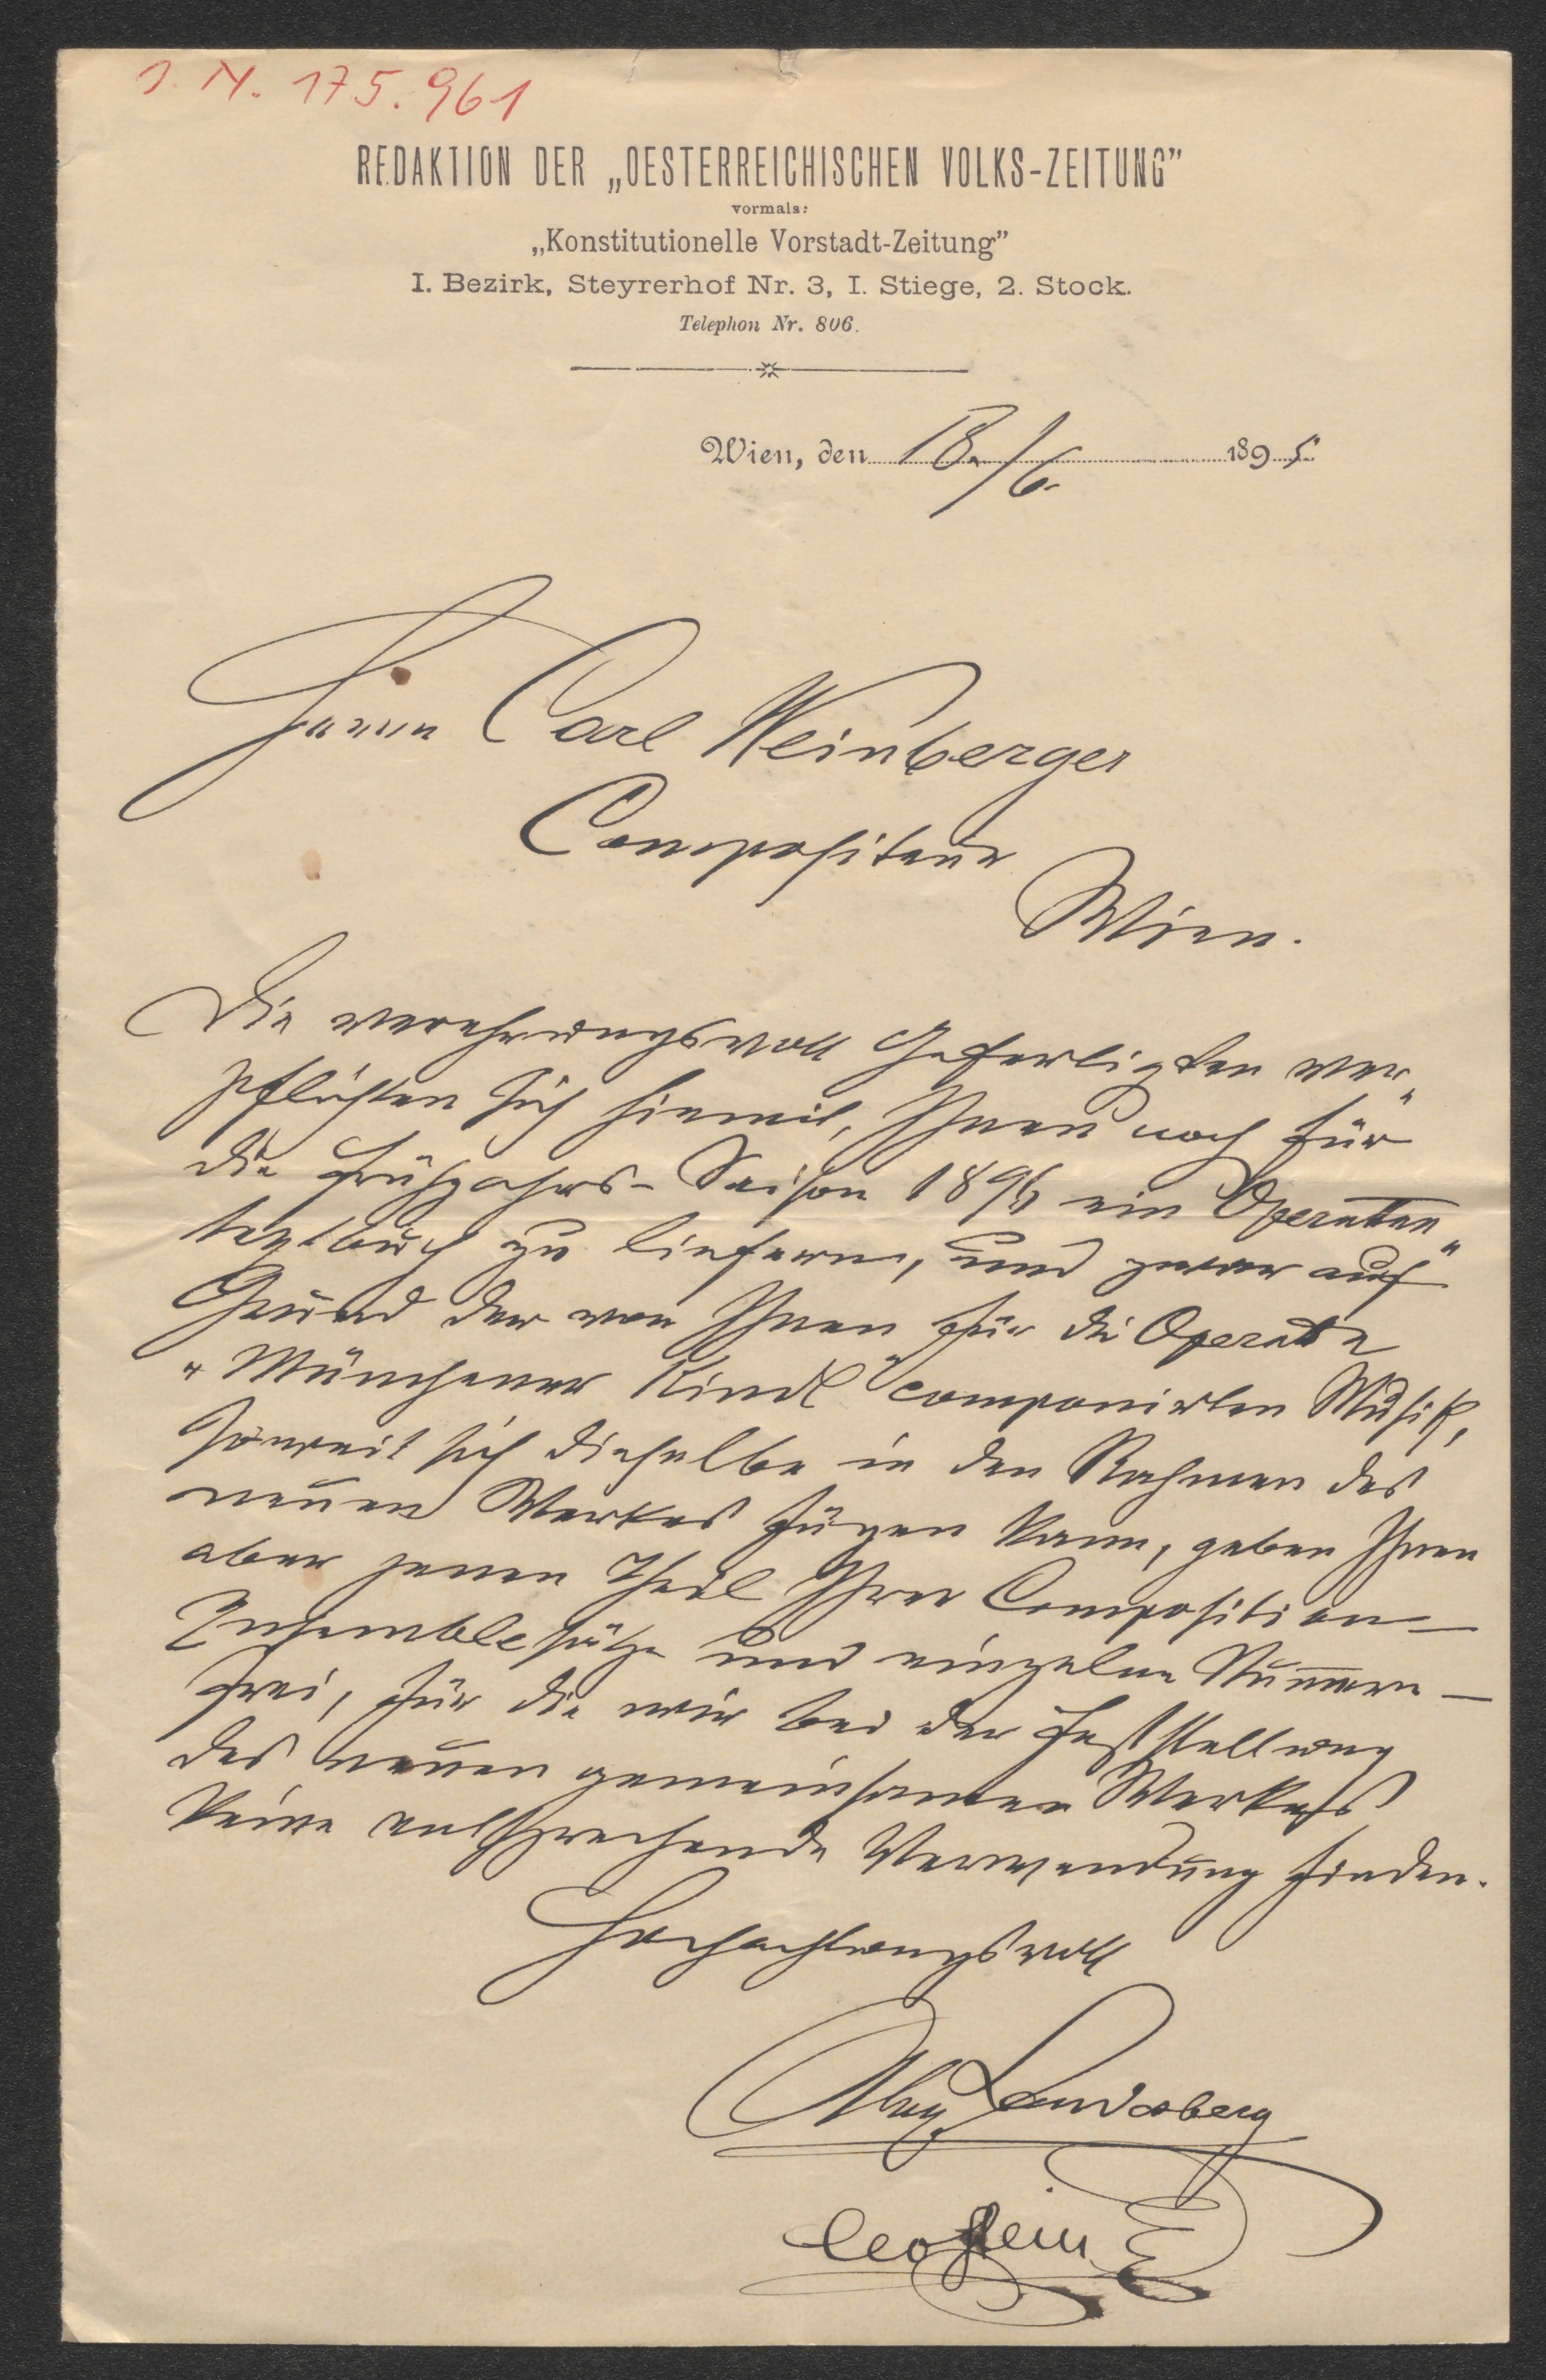 I. N. 175.961
REDAKTION DER „OESTERREICHISCHEN VOLKS-ZEITUNG”
vormals:
„Konstitutionelle Vorstadt-Zeitung”
I. Bezirk, Steyrerhof Nr. 3, I. Stiege, 2. Stock.
Telephon Nr. 806.
Wien, den 18./6. 1895
Herrn Carl Weinberger
Compositeur
Wien.
Die verehrungsvoll Gefertigten ver„
pflichten sich hiemit, Ihnen noch für
die Frühjahrs-Saison 1896 ein Operetten„
textbuch zu liefern, und zwar auf
Grund der von Ihnen für die Operette
„Münchener Kindl“ componirten Musik,
soweit sich dieselbe in den Rahmen des
neuen Werkes fügen kann, geben Ihnen
aber jenen Theil Ihrer Composition –
Ensemblesätze und einzelne Nummern –
frei, für die wir bei der Feststellung
des neuen gemeinsamen Werkes
keine entsprechende Verwendung finden.
Hochachtungsvoll
Alex. Landesberg
Leo Stein